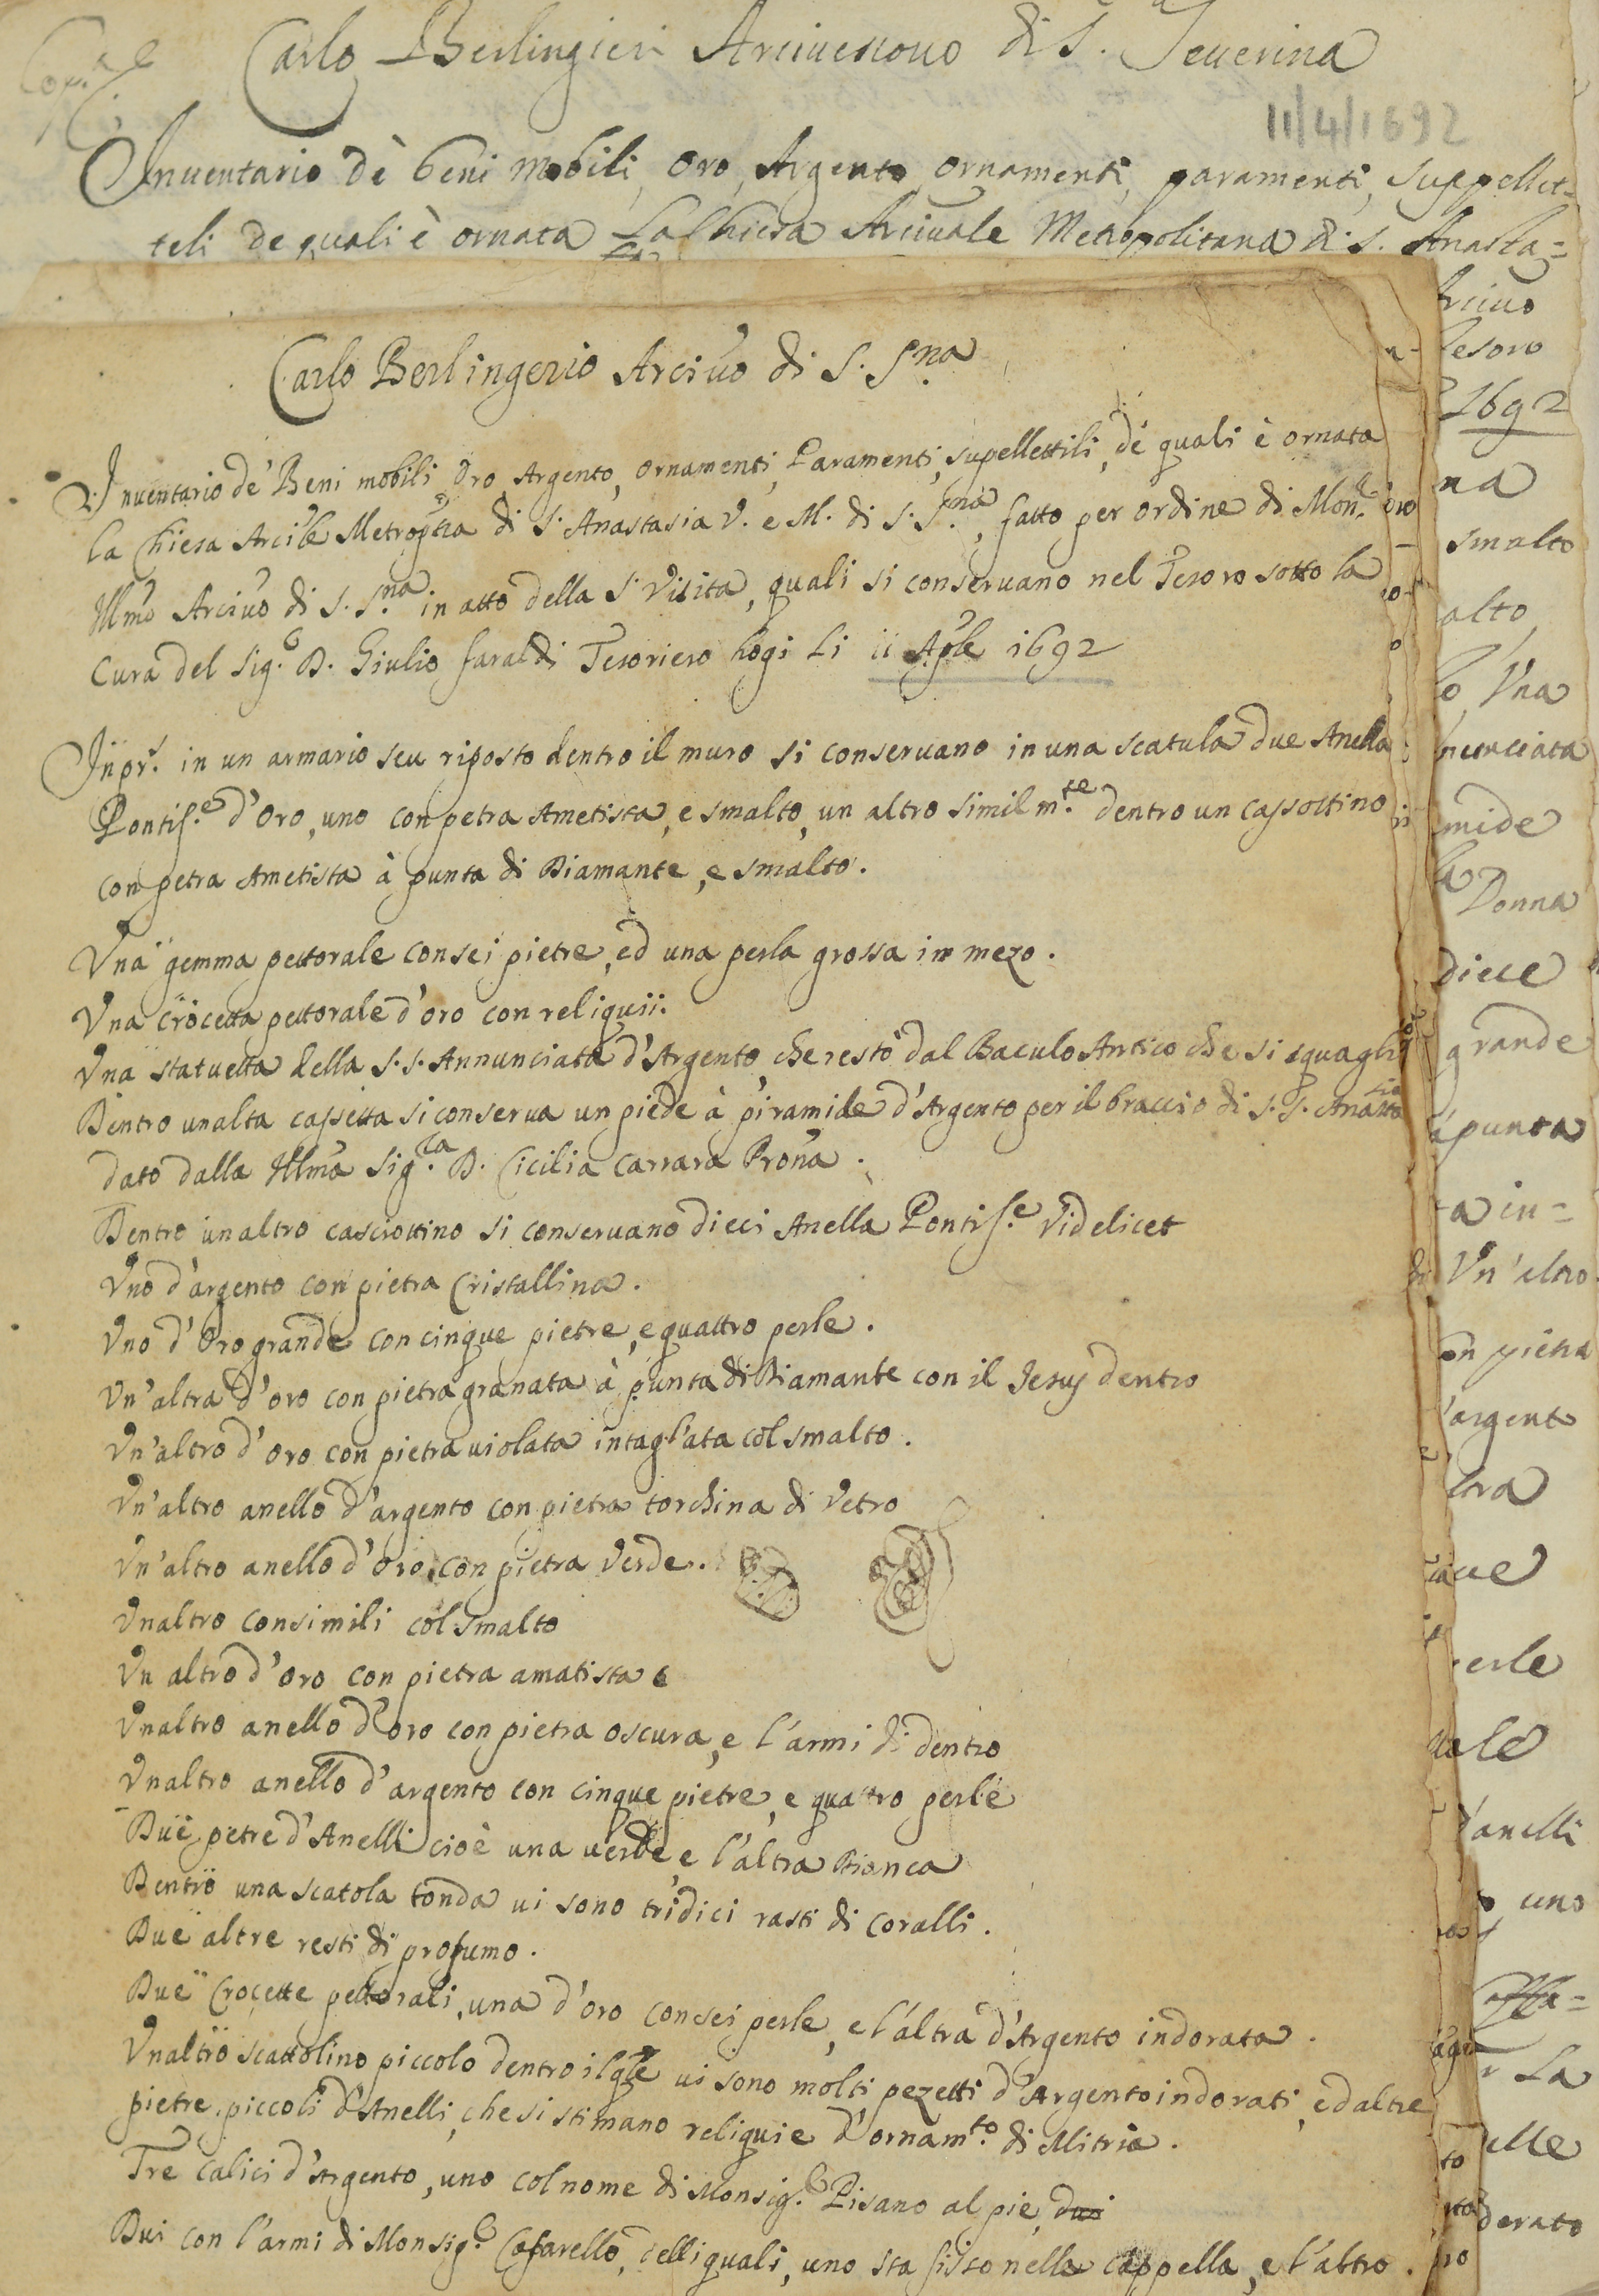 Carlo Berlingieri Arciuescouo di S. Seuerina
11/4/1692
Inuentario dè beni mobili, oro, Argento ornamenti, paramenti, suppellet=
teli de quali è ornata La Chiesa Arciuale Metropolitana di S. Anasta=
Carlo Berlingerio Arciuo di S. Sna
Inuentario de' Beni mobili Oro Argento, ornamenti, Paramenti, supellettili, de' quali è ornata
la Chiesa Arcile Metropna di S. Anastasia V. e M. di S. Sna, fatto per ordine di Mon.
Illmo Arciuo di S. Sna in atto della S. Visita, quali si conseruano nel Tesoro sotto la
cura del Sig.e D. Giulio faraldi Tesoriero hogi li ii Aple 1692
Inpr.s in un armario seu riposto dentro il muro si conseruano in una scatula due Anella
Pontif.e d'Oro, uno con petra Ametista, e smalto, un altro similm.te dentro un cassottino
con petra Ametista à punta di Diamante, e smalto.
Una gemma pettorale con sei pietre, ed una perla grossa in mezo.
Una crocetta pettorale d'oro con reliquii.
Una statuetta della S.S. Annunciata d'Argento, che restò dal Baculo Antico che si squagliò
Dentro unalta cassetta si conserua un piede à piramide d'Argento per il braccio di S. S. Anasta
dato dalla Illma Sig.ra D. Cicilia Carrara Prona.
Dentro un altro casciottino si conseruano dieci Anella Pontif.e Videlicet
Uno d'argento con pietra Cristallina.
Uno d'Oro grande con cinque pietre, e quattro perle.
Un'altra d'oro con pietra granata à punta di Diamante con il Jesus dentro
Un'altro d'oro con pietra uiolata intagl'ata col smalto.
Un'altro anello d'argento con pietra torchina di Vetro
Un'altro anello d'oro con pietra Verde.
Unaltro consimili col smalto
Un altro d'oro con pietra amatista e
Unaltro anello d'oro con pietra oscura, e l'armi di dentro
Unaltro anello d'argento con cinque pietre, e quattro perle
Due petre d'Anelli cioè una uerde, e l'altra Bianca
Dentro una scatola tonda ui sono tridici rasti di Coralli.
Due altre resti di profumo.
Due Crocette pettorali, una d'oro con sei perle, e l'altra d'Argento indorata.
Unaltro scattolino piccolo dentro il qle ui sono molti pezetti d'Argento indorati, ed altre
pietre piccoli d'Anelli, che si stimano reliquie d'ornam.to di Mitria.
Tre calici d'Argento, uno col nome di Monsig.e Pisano al pie, dui
Dui con l'armi di Monsig.e Cafarello, delli quali, uno sta fisso nella Cappella, e l'altro.
Arciuo
Tesoro
1692
na
smalto
alto
lo, Una
nunciata
mide
la Donna
diece
grande
à punta
ta in=
Un'altro
on pietra
d'argento
tra
que
perle
d'anelli
o uno
r La
elle
dorato